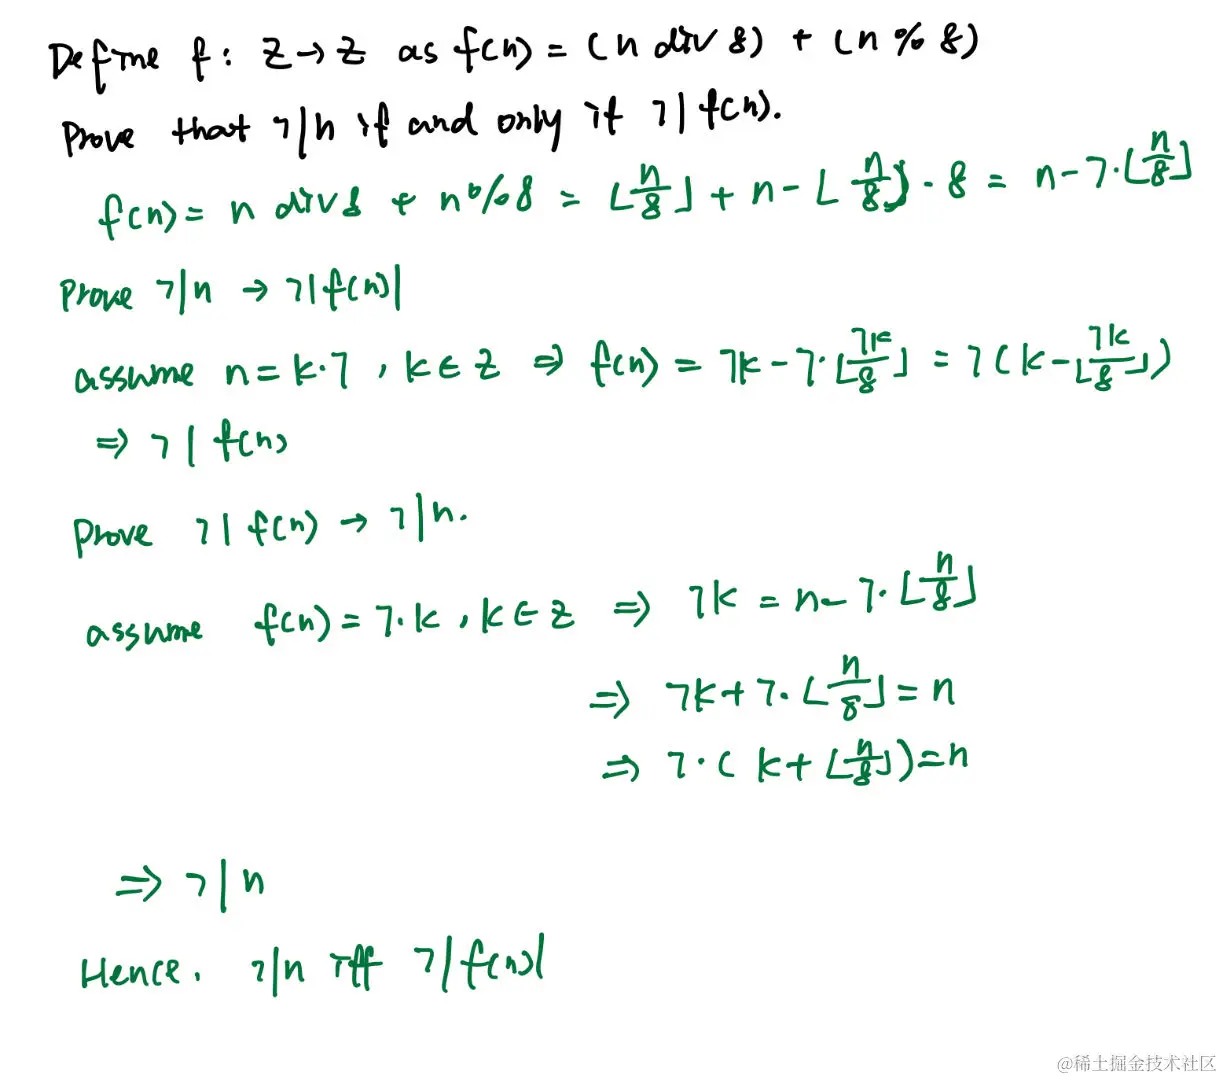 Define f: Z→Z as f(n) = (n div 8) + (n % 8)
Prove that 7|n if and only if 7| f(n).
f(n) = n div 8 + n%8 = ⌊n/8⌋ + n - ⌊n/8⌋ · 8 = n - 7·⌊n/8⌋
Prove 7|n → 7|f(n)|
assume n = k·7 , k∈Z ⇒ f(n) = 7k - 7·⌊7k/8⌋ = 7(k - ⌊7k/8⌋)
⇒ 7 | f(n)
Prove 7| f(n) → 7|n.
assume f(n) = 7·k , k∈Z ⇒ 7k = n - 7·⌊n/8⌋
⇒ 7k + 7·⌊n/8⌋ = n
⇒ 7·( k + ⌊n/8⌋) = n
⇒ 7|n
Hence. 7|n iff 7|f(n)|
@稀土掘金技术社区